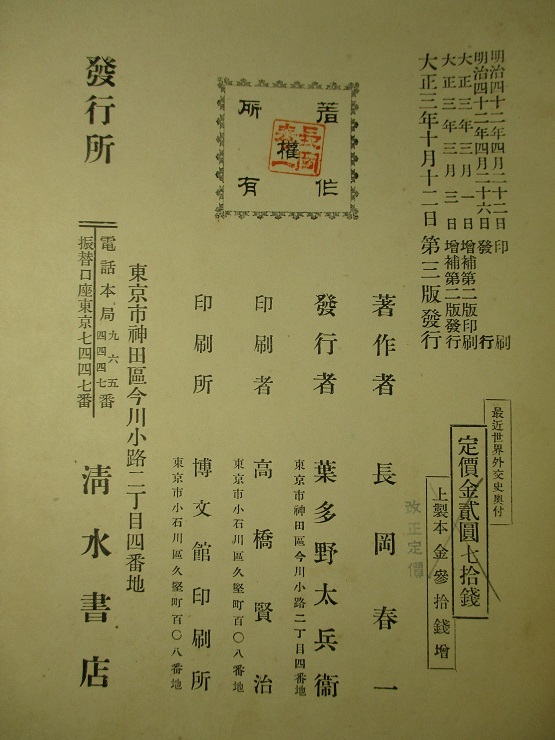 最近世界外交史奧付
定價金貳圓七拾錢
上製本金參拾錢增
改正定價
明治四十二年四月二十二日印刷
明治四十二年四月二十六日發行
大正三年三月一日增補第二版印刷
大正三年三月三日增補第二版發行
大正三年十月十二日第三版發行
著作者 長岡春一
發行者 葉多野太兵衞
東京市神田區今川小路二丁目四番地
印刷者 高橋賢治
東京市小石川區久堅町百〇八番地
印刷所 博文館印刷所
東京市小石川區久堅町百〇八番地
著作
權
所有
長岡春一
東京市神田區今川小路二丁目四番地
發行所 淸水書店
電話本局九六五番
四四四七番
振替口座東京七四四七番